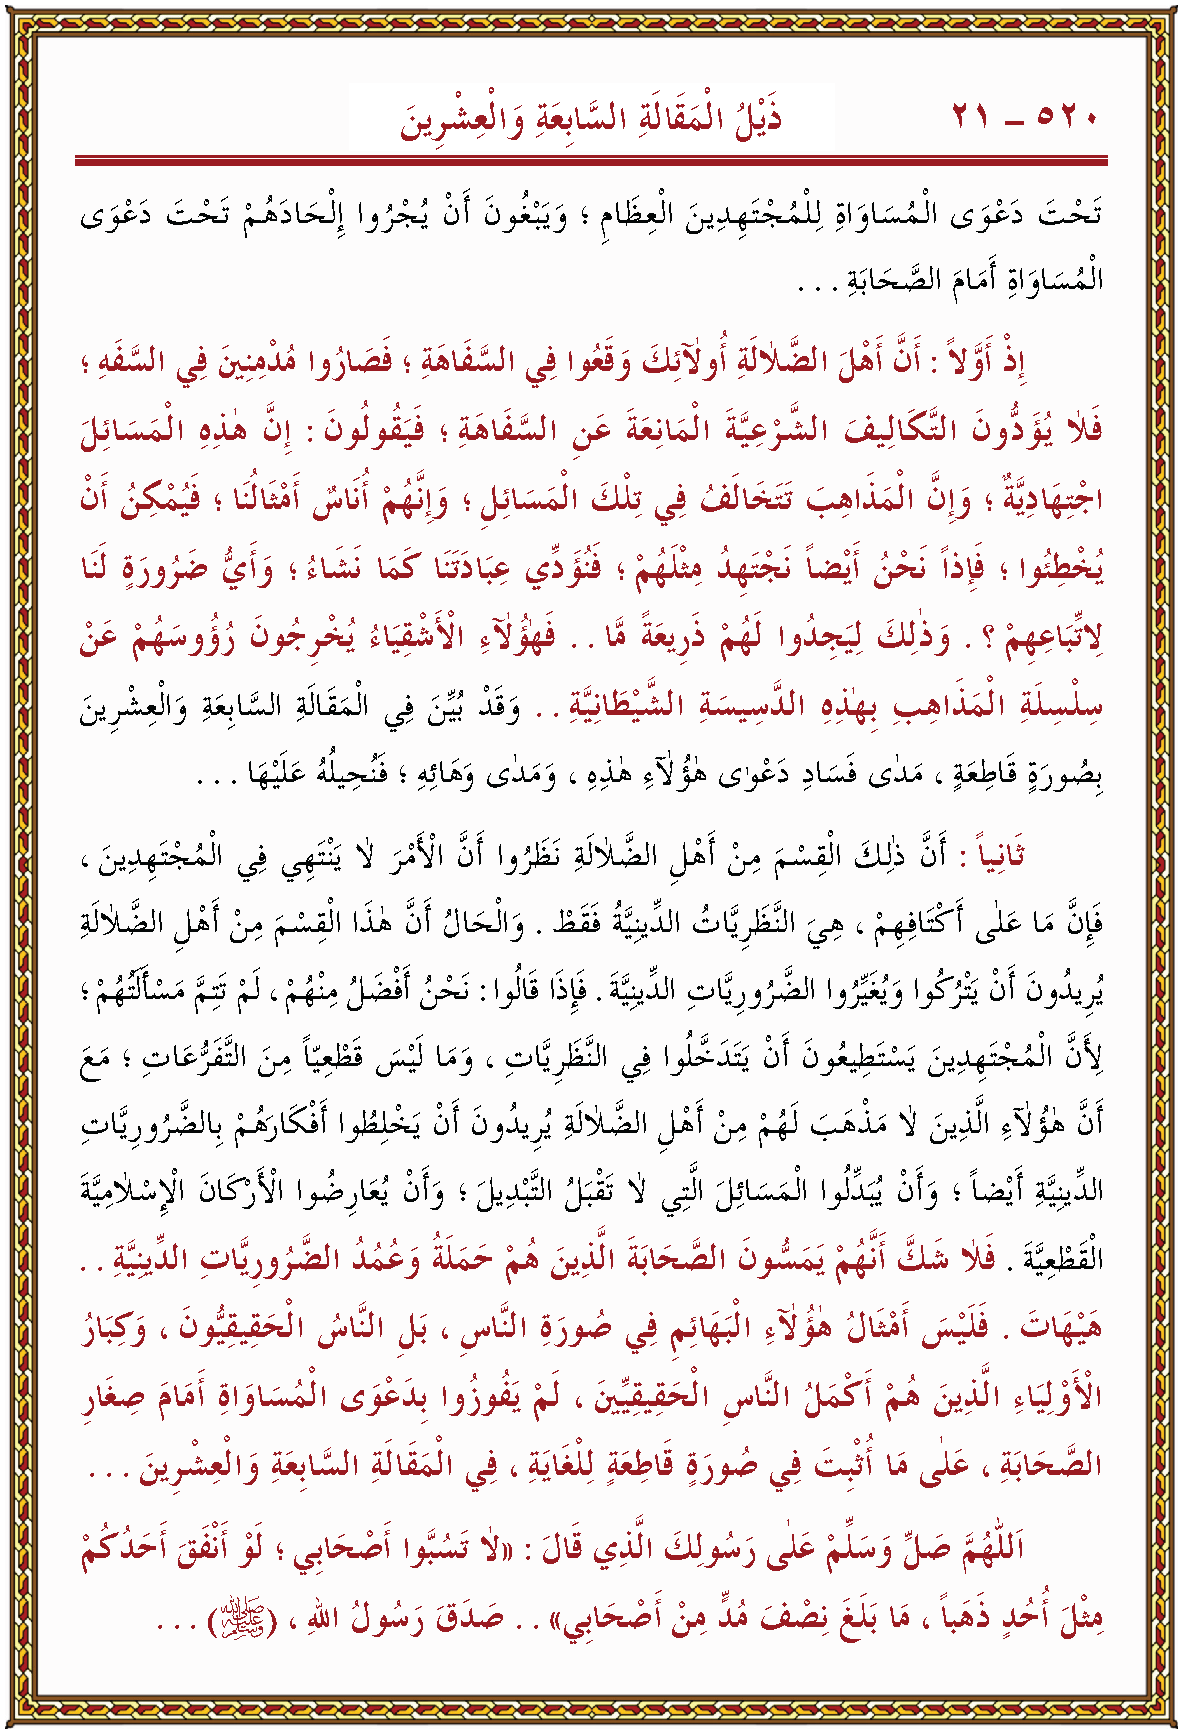 ٥٢٠ – ٢١ ذَيْلُ الْمَقَالَةِ السَّابِعَةِ وَالْعِشْرِينَ
تَحْتَ دَعْوَى الْمُسَاوَاةِ لِلْمُجْتَهِدِينَ الْعِظَامِ ؛ وَيَبْغُونَ أَنْ يُجْرُوا إِلْحَادَهُمْ تَحْتَ دَعْوَى
الْمُسَاوَاةِ أَمَامَ الصَّحَابَةِ . . .
إِذْ أَوَّلاً : أَنَّ أَهْلَ الضَّلاٰلَةِ أُوآلٰئِكَ وَقَعُوا فِي السَّفَاهَةِ ؛ فَصَارُوا مُدْمِنِينَ فِي السَّفَهِ ؛
فَلاٰ يُؤَدُّونَ التَّكَالِيفَ الشَّرْعِيَّةَ الْمَانِعَةَ عَنِ السَّفَاهَةِ ؛ فَيَقُولُونَ : إِنَّ هٰذِهِ الْمَسَائِلَ
اجْتِهَادِيَّةٌ ؛ وَإِنَّ الْمَذَاهِبَ تَتَخَالَفُ فِي تِلْكَ الْمَسَائِلِ ؛ وَإِنَّهُمْ أُنَاسٌ أَمْثَالُنَا ؛ فَيُمْكِنُ أَنْ
يُخْطِئُوا ؛ فَإِذاً نَحْنُ أَيْضاً نَجْتَهِدُ مِثْلَهُمْ ؛ فَنُؤَدِّي عِبَادَتَنَا كَمَا نَشَاءُ ؛ وَأَيُّ ضُرُورَةٍ لَنَا
لِاتِّبَاعِهِمْ ؟ . وَذٰلِكَ لِيَجِدُوا لَهُمْ ذَرِيعَةً مَّا . . فَهٰؤُلآٰءِ الْأَشْقِيَاءُ يُخْرِجُونَ رُؤُوسَهُمْ عَنْ
سِلْسِلَةِ الْمَذَاهِبِ بِهٰذِهِ الدَّسِيسَةِ الشَّيْطَانِيَّةِ . . وَقَدْ بُيِّنَ فِي الْمَقَالَةِ السَّابِعَةِ وَالْعِشْرِينَ
بِصُورَةٍ قَاطِعَةٍ ، مَدٰى فَسَادِ دَعْوٰى هٰؤُلآٰءِ هٰذِهِ ، وَمَدٰى وَهَائِهِ ؛ فَنُحِيلُهُ عَلَيْهَا . . .
ثَانِياً : أَنَّ ذٰلِكَ الْقِسْمَ مِنْ أَهْلِ الضَّلاٰلَةِ نَظَرُوا أَنَّ الْأَمْرَ لاٰ يَنْتَهِي فِي الْمُجْتَهِدِينَ ،
فَإِنَّ مَا عَلٰى أَكْتَافِهِمْ ، هِيَ النَّظَرِيَّاتُ الدِّينِيَّةُ فَقَطْ . وَالْحَالُ أَنَّ هٰذَا الْقِسْمَ مِنْ أَهْلِ الضَّلاٰلَةِ
يُرِيدُونَ أَنْ يَتْرُكُوا وَيُغَيِّرُوا الضَّرُورِيَّاتِ الدِّينِيَّةَ . فَإِذَا قَالُوا : نَحْنُ أَفْضَلُ مِنْهُمْ ، لَمْ تَتِمَّ مَسْأَلَتُهُمْ ؛
لِأَنَّ الْمُجْتَهِدِينَ يَسْتَطِيعُونَ أَنْ يَتَدَخَّلُوا فِي النَّظَرِيَّاتِ ، وَمَا لَيْسَ قَطْعِيّاً مِنَ التَّفَرُّعَاتِ ؛ مَعَ
أَنَّ هٰؤُلآٰءِ الَّذِينَ لاٰ مَذْهَبَ لَهُمْ مِنْ أَهْلِ الضَّلاٰلَةِ يُرِيدُونَ أَنْ يَخْلِطُوا أَفْكَارَهُمْ بِالضَّرُورِيَّاتِ
الدِّينِيَّةِ أَيْضاً ؛ وَأَنْ يُبَدِّلُوا الْمَسَائِلَ الَّتِي لاٰ تَقْبَلُ التَّبْدِيلَ ؛ وَأَنْ يُعَارِضُوا الْأَرْكَانَ الْإِسْلاَمِيَّةَ
الْقَطْعِيَّةَ . فَلاٰ شَكَّ أَنَّهُمْ يَمَسُّونَ الصَّحَابَةَ الَّذِينَ هُمْ حَمَلَةُ وَعُمُدُ الضَّرُورِيَّاتِ الدِّينِيَّةِ . .
هَيْهَاتَ . فَلَيْسَ أَمْثَالُ هٰؤُلآٰءِ الْبَهَائِمِ فِي صُورَةِ النَّاسِ ، بَلِ النَّاسُ الْحَقِيقِيُّونَ ، وَكِبَارُ
الْأَوْلِيَاءِ الَّذِينَ هُمْ أَكْمَلُ النَّاسِ الْحَقِيقِيِّينَ ، لَمْ يَفُوزُوا بِدَعْوَى الْمُسَاوَاةِ أَمَامَ صِغَارِ
الصَّحَابَةِ ، عَلٰى مَا أُثْبِتَ فِي صُورَةٍ قَاطِعَةٍ لِلْغَايَةِ ، فِي الْمَقَالَةِ السَّابِعَةِ وَالْعِشْرِينَ . . .
اَللّٰهُمَّ صَلِّ وَسَلِّمْ عَلٰى رَسُولِكَ الَّذِي قَالَ : «لاٰ تَسُبُّوا أَصْحَابِي ؛ لَوْ أَنْفَقَ أَحَدُكُمْ
مِثْلَ أُحُدٍ ذَهَباً ، مَا بَلَغَ نِصْفَ مُدٍّ مِنْ أَصْحَابِي» . . صَدَقَ رَسُولُ اللهِ ، (ﷺ) . . .